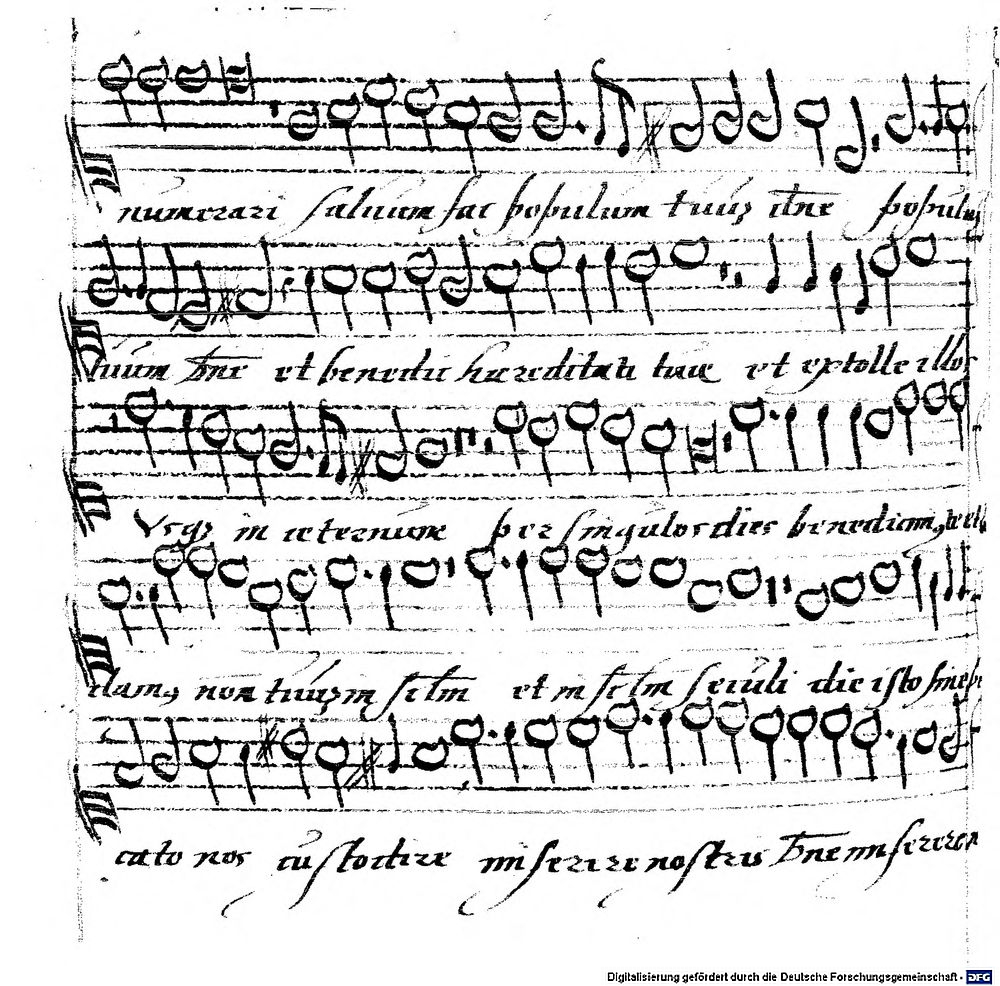 numerari saluum fac populum tuuʒ dn̄e populu
tuum Dn̄e et benedic hæreditati tuæ et extolle illos
Vsqʒ in æternum per singulos dies benedicimʒ te et
damʒ non tuuʒ in sc̄lm et in sc̄lm seculi die isto sine pe
cato nos custodire miserere nostris Dn̄e miserere n
Digitalisierung gefördert durch die Deutsche Forschungsgemeinschaft - DFG